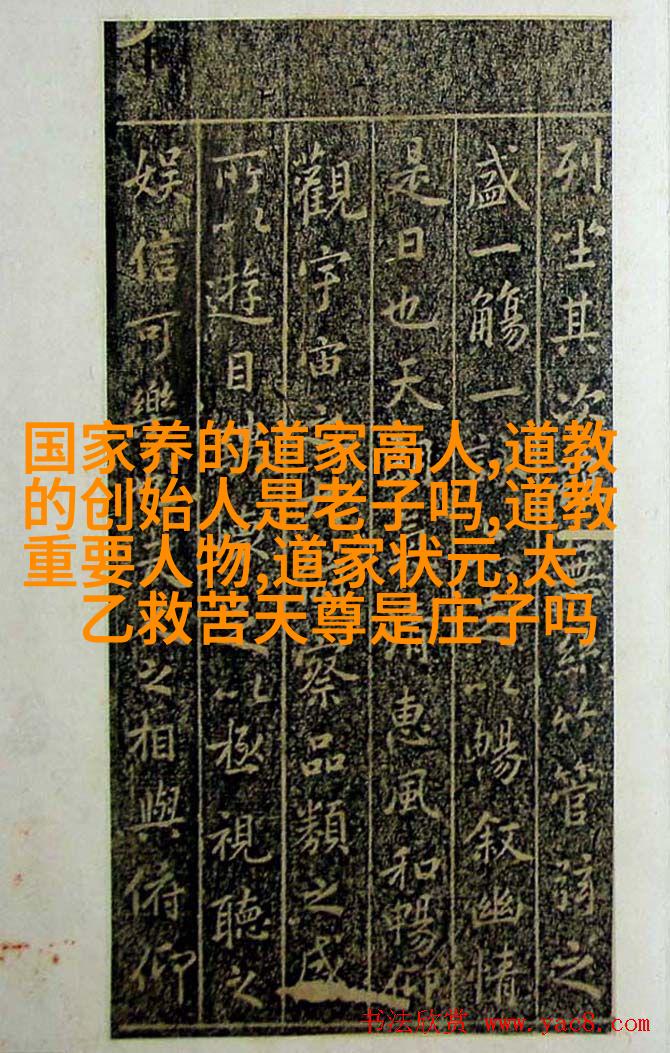 国家养的道家高人,道教
的创始人是老子吗,道教
重要人物,道家状元,太
乙救苦天尊是庄子吗
列坐其無絲竹管弦之
盛一觴一以暢叙幽情
是日也天惠風和暢仰
觀宇宙察品類之盛
所以遊目以極視聽之
娛信可樂之相與俯仰
书法欣赏 www.yac8.com